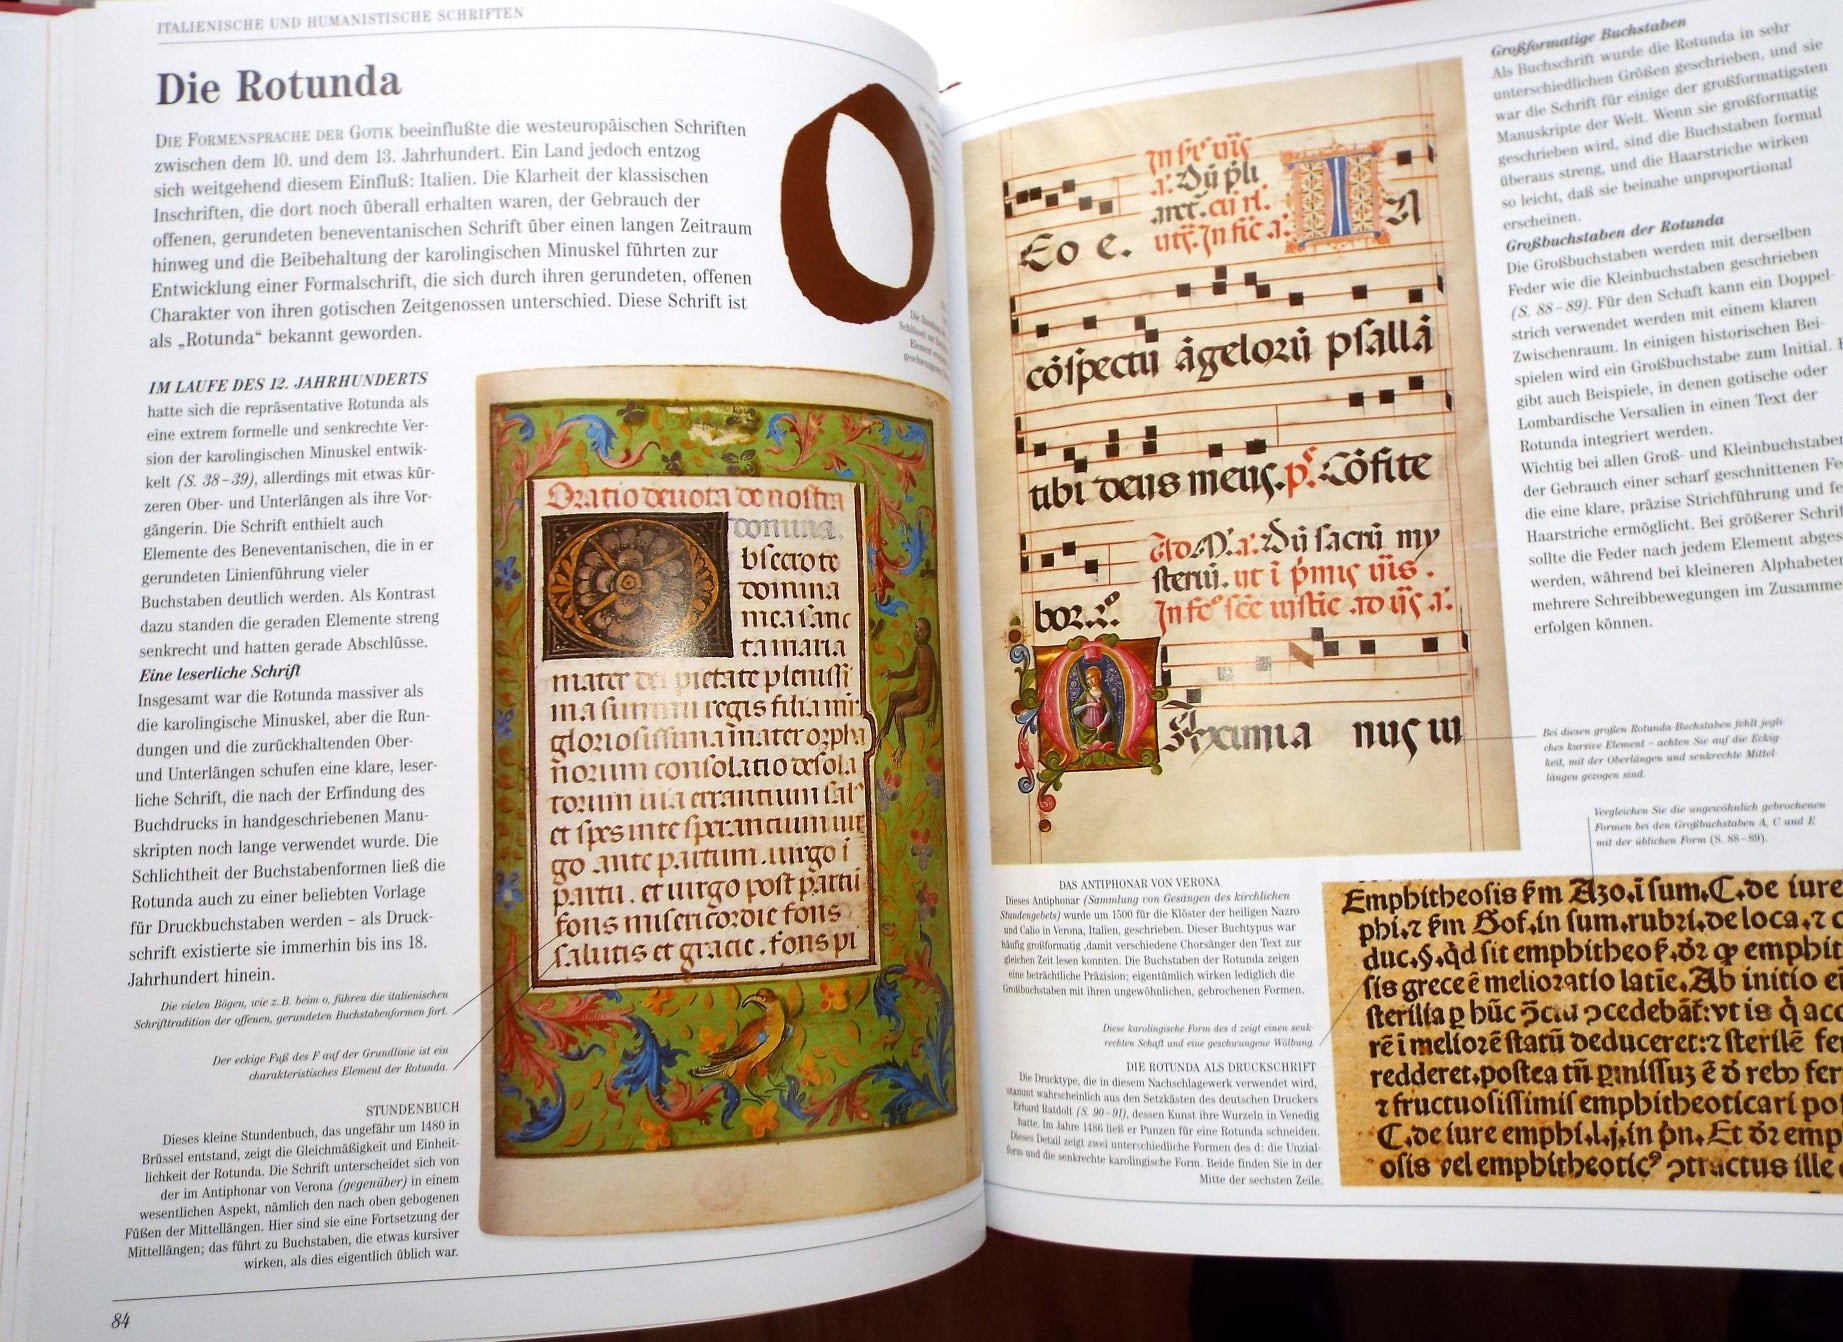 ITALIENISCHE UND HUMANISTISCHE SCHRIFTEN
Die Rotunda
DIE FORMENSPRACHE DER GOTIK beeinflußte die westeuropäischen Schriften
zwischen dem 10. und dem 13. Jahrhundert. Ein Land jedoch entzog
sich weitgehend diesem Einfluß: Italien. Die Klarheit der klassischen
Inschriften, die dort noch überall erhalten waren, der Gebrauch der
offenen, gerundeten beneventanischen Schrift über einen langen Zeitraum
hinweg und die Beibehaltung der karolingischen Minuskel führten zur
Entwicklung einer Formalschrift, die sich durch ihren gerundeten, offenen
Charakter von ihren gotischen Zeitgenossen unterschied. Diese Schrift ist
als „Rotunda“ bekannt geworden.
IM LAUFE DES 12. JAHRHUNDERTS
hatte sich die repräsentative Rotunda als
eine extrem formelle und senkrechte Ver-
sion der karolingischen Minuskel entwik-
kelt (S. 38–39), allerdings mit etwas kür-
zeren Ober- und Unterlängen als ihre Vor-
gängerin. Die Schrift enthielt auch
Elemente des Beneventanischen, die in er
gerundeten Linienführung vieler
Buchstaben deutlich werden. Als Kontrast
dazu standen die geraden Elemente streng
senkrecht und hatten gerade Abschlüsse.
Eine leserliche Schrift
Insgesamt war die Rotunda massiver als
die karolingische Minuskel, aber die Run-
dungen und die zurückhaltenden Ober-
und Unterlängen schufen eine klare, leser-
liche Schrift, die nach der Erfindung des
Buchdrucks in handgeschriebenen Manu-
skripten noch lange verwendet wurde. Die
Schlichtheit der Buchstabenformen ließ die
Rotunda auch zu einer beliebten Vorlage
für Druckbuchstaben werden – als Druck-
schrift existierte sie immerhin bis ins 18.
Jahrhundert hinein.
Die vielen Bögen, wie z. B. beim o, führen die italienischen
Schrifttradition der offenen, gerundeten Buchstabenformen fort.
Der eckige Fuß des F auf der Grundlinie ist ein
charakteristisches Element der Rotunda.
STUNDENBUCH
Dieses kleine Stundenbuch, das ungefähr um 1480 in
Brüssel entstand, zeigt die Gleichmäßigkeit und Einheit-
lichkeit der Rotunda. Die Schrift unterscheidet sich von
der im Antiphonar von Verona (gegenüber) in einem
wesentlichen Aspekt, nämlich den nach oben gebogenen
Füßen der Mittellängen. Hier sind sie eine Fortsetzung der
Mittellängen; das führt zu Buchstaben, die etwas kursiver
wirken, als dies eigentlich üblich war.
84
O
Oratio deuota de nostra
domina.
bsecro te
domina
mea sanc
ta maria
mater dei pietate plenissi
ma summi regis filia mr
gloriosissima mater orpha
norum consolatio desola
torum via errantium sal
et spes in te sperantium uir
go ante partum. uirgo i
partu. et uirgo post partū
fons misericordie fons
salutis et gracie. fons pi
Eo e.
cōspectu āgelorū psallā
tibi deus meus. ps. Cōfite
bor.
Dū sacrū my
sterium.
nus
DAS ANTIPHONAR VON VERONA
Dieses Antiphonar (Sammlung von Gesängen des kirchlichen
Stundengebets) wurde um 1500 für die Klöster der heiligen Nazro
und Calio in Verona, Italien, geschrieben. Dieser Buchtypus war
häufig großformatig ,damit verschiedene Chorsänger den Text zur
gleichen Zeit lesen konnten. Die Buchstaben der Rotunda zeigen
eine beträchtliche Präzision; eigentümlich wirken lediglich die
Großbuchstaben mit ihren ungewöhnlichen, gebrochenen Formen.
Diese karolingische Form des d zeigt einen senk-
rechten Schaft und eine geschwungene Wölbung.
DIE ROTUNDA ALS DRUCKSCHRIFT
Die Drucktype, die in diesem Nachschlagewerk verwendet wird,
stammt wahrscheinlich aus den Setzkästen des deutschen Druckers
Erhard Ratdolt (S. 90–91), dessen Kunst ihre Wurzeln in Venedig
hatte. Im Jahre 1486 ließ er Punzen für eine Rotunda schneiden.
Dieses Detail zeigt zwei unterschiedliche Formen des d: die Unzial-
form und die senkrechte karolingische Form. Beide finden Sie in der
Mitte der sechsten Zeile.
Großformatige Buchstaben
Als Buchschrift wurde die Rotunda in sehr
unterschiedlichen Größen geschrieben, und sie
war die Schrift für einige der großformatigsten
Manuskripte der Welt. Wenn sie großformatig
geschrieben wird, sind die Buchstaben formal
überaus streng, und die Haarstriche wirken
so leicht, daß sie beinahe unproportional
erscheinen.
Großbuchstaben der Rotunda
Die Großbuchstaben werden mit derselben
Feder wie die Kleinbuchstaben geschrieben
(S. 88–89). Für den Schaft kann ein Doppel-
strich verwendet werden mit einem klaren
Zwischenraum. In einigen historischen Bei-
spielen wird ein Großbuchstabe zum Initial.
gibt auch Beispiele, in denen gotische oder
Lombardische Versalien in einen Text der
Rotunda integriert werden.
Wichtig bei allen Groß- und Kleinbuchstaben
der Gebrauch einer scharf geschnittenen
die eine klare, präzise Strichführung und
Haarstriche ermöglicht. Bei größerer
sollte die Feder nach jedem Element
werden, während bei kleineren Alphabeten
mehrere Schreibbewegungen im
erfolgen können.
Bei diesen großen Rotunda-Buchstaben fehlt jegli-
ches kursive Element – achten Sie auf die Eckig-
keit, mit der Oberlängen und senkrechte Mittel-
längen gezogen sind.
Vergleichen Sie die ungewöhnlich gebrochenen
Formen bei den Großbuchstaben A, C und E
mit der üblichen Form (S. 88–89).
Emphitheosis Azo. ī sum. C. de iure
in sum. rubri. de loca.
duc. §. sit emphitheo
sis grece ē melioratio latīe. Ab initio
sterilia
rē ī meliorē statū deduceret: ⁊ sterilē
redderet. postea
⁊ fructuosissimis emphitheoticari
C. de iure emphi. l. j. in Et
osis vel emphitheotic tractus ille